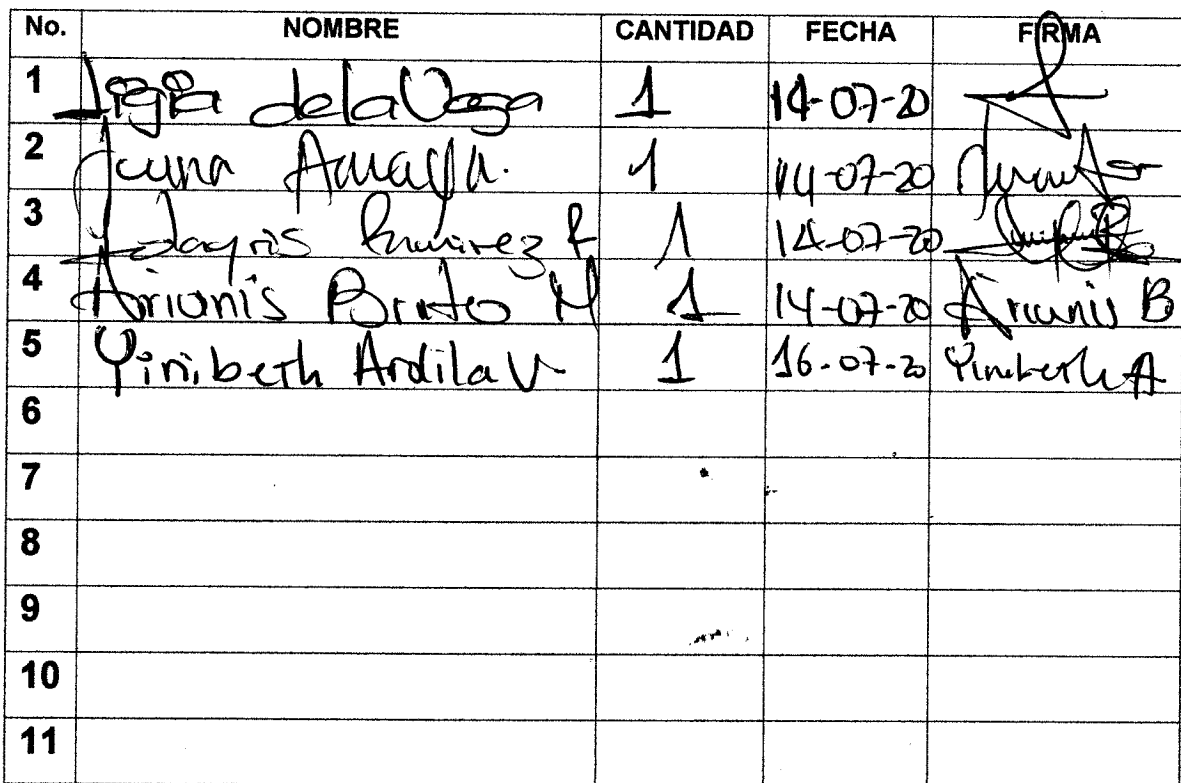 No. NOMBRE CANTIDAD FECHA FIRMA
1 Ligia de la Vega 1 14-07-20
2 Juana Amaya. 1 14-07-20
3 Idagris Ramirez R 1 14-07-20
4 Arianis Brito M 1 14-07-20 Arianis B
5 Yinibeth Ardila V 1 16-07-20 Yinibeth A
6
7
8
9
10
11